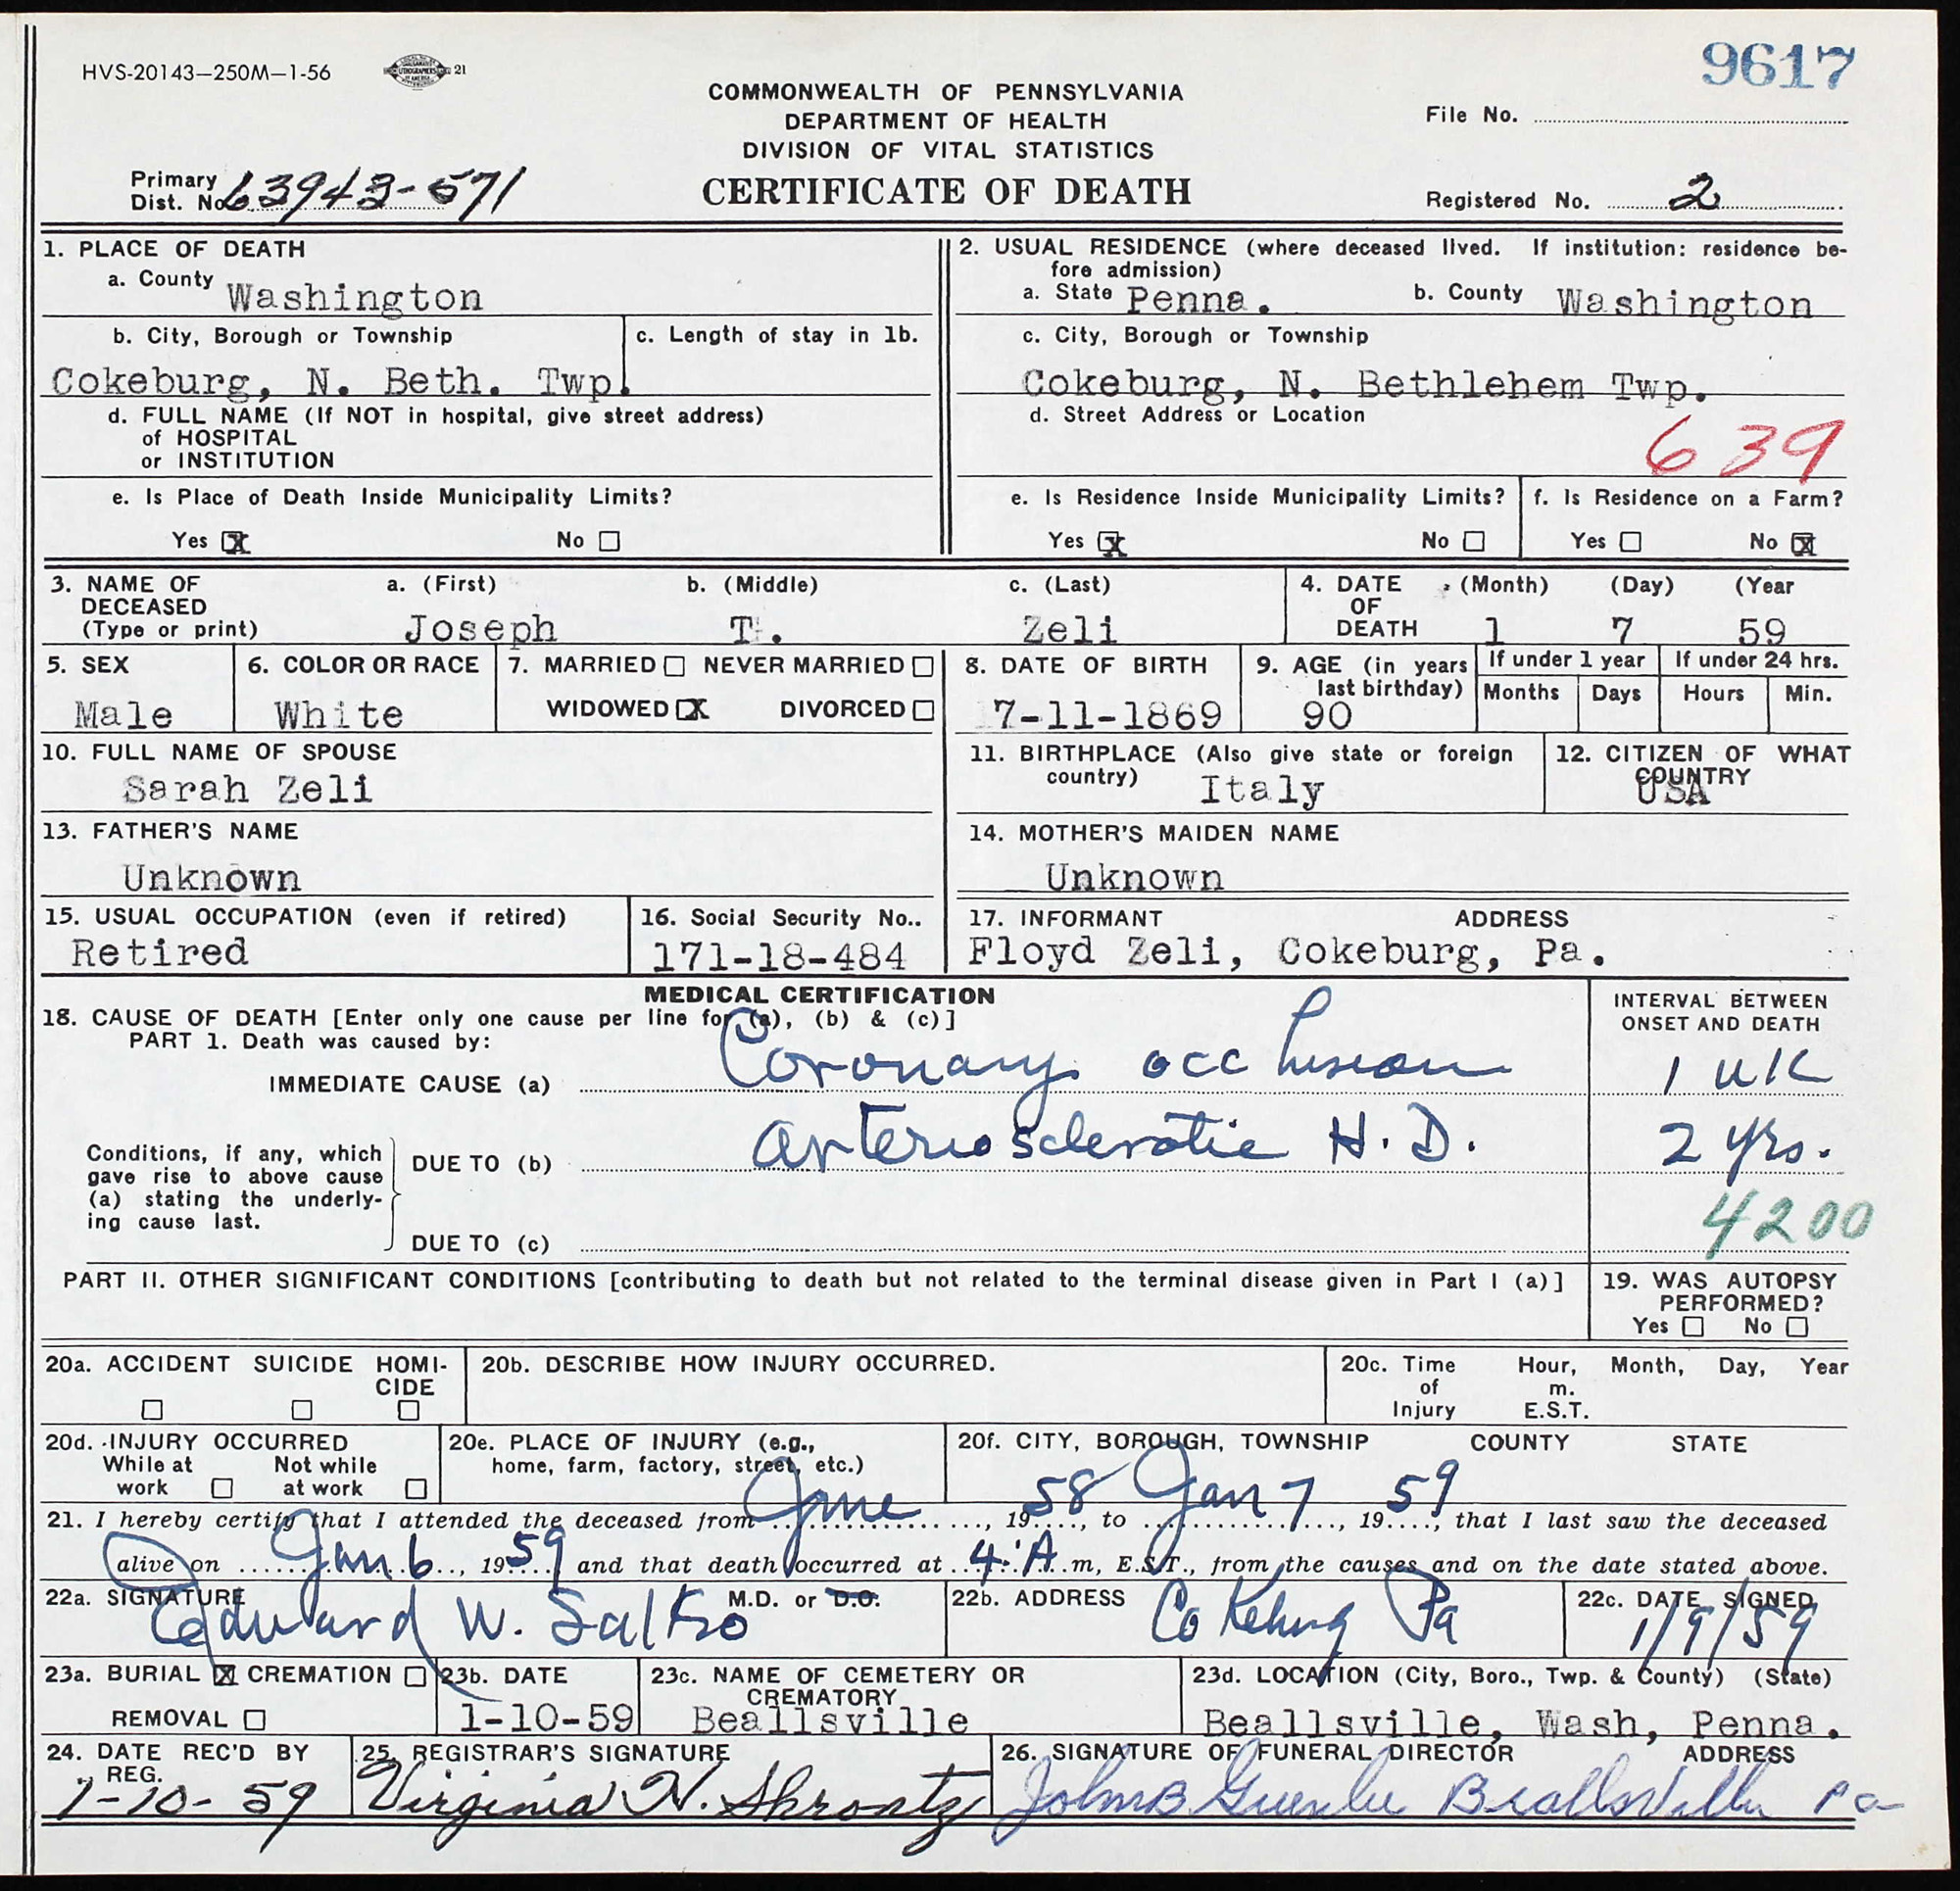 HVS-20143—250M—1-56 21
9617
COMMONWEALTH OF PENNSYLVANIA
DEPARTMENT OF HEALTH
DIVISION OF VITAL STATISTICS
CERTIFICATE OF DEATH
File No.
Primary
Dist. No. 63943-571
Registered No. 2
1. PLACE OF DEATH
a. County Washington
b. City, Borough or Township
c. Length of stay in 1b.
Cokeburg, N. Beth. Twp.
d. FULL NAME (If NOT in hospital, give street address)
of HOSPITAL
or INSTITUTION
e. Is Place of Death Inside Municipality Limits?
Yes X No
2. USUAL RESIDENCE (where deceased lived. If institution: residence be-
fore admission)
a. State Penna. b. County Washington
c. City, Borough or Township
Cokeburg, N. Bethlehem Twp.
d. Street Address or Location
639
e. Is Residence Inside Municipality Limits? f. Is Residence on a Farm?
Yes X No Yes No X
3. NAME OF a. (First) b. (Middle) c. (Last)
DECEASED
(Type or print) Joseph T. Zeli
4. DATE (Month) (Day) (Year
OF
DEATH 1 7 59
5. SEX
Male
6. COLOR OR RACE
White
7. MARRIED NEVER MARRIED
WIDOWED X DIVORCED
8. DATE OF BIRTH
7-11-1869
9. AGE (in years
last birthday)
90
If under 1 year If under 24 hrs.
Months Days Hours Min.
10. FULL NAME OF SPOUSE
Sarah Zeli
11. BIRTHPLACE (Also give state or foreign
country) Italy
12. CITIZEN OF WHAT
COUNTRY
USA
13. FATHER'S NAME
Unknown
14. MOTHER'S MAIDEN NAME
Unknown
15. USUAL OCCUPATION (even if retired)
Retired
16. Social Security No..
171-18-484
17. INFORMANT ADDRESS
Floyd Zeli, Cokeburg, Pa.
MEDICAL CERTIFICATION
18. CAUSE OF DEATH [Enter only one cause per line for (a), (b) & (c)]
PART 1. Death was caused by:
INTERVAL BETWEEN
ONSET AND DEATH
IMMEDIATE CAUSE (a) Coronary occlusion 1 wk
Conditions, if any, which
gave rise to above cause
(a) stating the underly-
ing cause last.
DUE TO (b) Arteriosclerotic H.D. 2 yrs.
4200
DUE TO (c)
PART II. OTHER SIGNIFICANT CONDITIONS [contributing to death but not related to the terminal disease given in Part I (a)]
19. WAS AUTOPSY
PERFORMED?
Yes No
20a. ACCIDENT SUICIDE HOMI-
CIDE
20b. DESCRIBE HOW INJURY OCCURRED.
20c. Time Hour, Month, Day, Year
of m.
Injury E.S.T.
20d. INJURY OCCURRED
While at Not while
work at work
20e. PLACE OF INJURY (e.g.,
home, farm, factory, street, etc.)
20f. CITY, BOROUGH, TOWNSHIP COUNTY STATE
21. I hereby certify that I attended the deceased from June, 1958, to Jan 7, 1959, that I last saw the deceased
alive on Jan 6, 1959 and that death occurred at 4: A m, E.S.T., from the causes and on the date stated above.
22a. SIGNATURE M.D. or D.O.
Edward W. Salko
22b. ADDRESS Cokeburg Pa
22c. DATE SIGNED
1/9/59
23a. BURIAL X CREMATION
REMOVAL
23b. DATE
1-10-59
23c. NAME OF CEMETERY OR
CREMATORY
Beallsville
23d. LOCATION (City, Boro., Twp. & County) (State)
Beallsville, Wash, Penna.
24. DATE REC'D BY
REG.
1-10-59
25. REGISTRAR'S SIGNATURE
Virginia N. Shrontz
26. SIGNATURE OF FUNERAL DIRECTOR ADDRESS
John B Greenlee Beallsville Pa